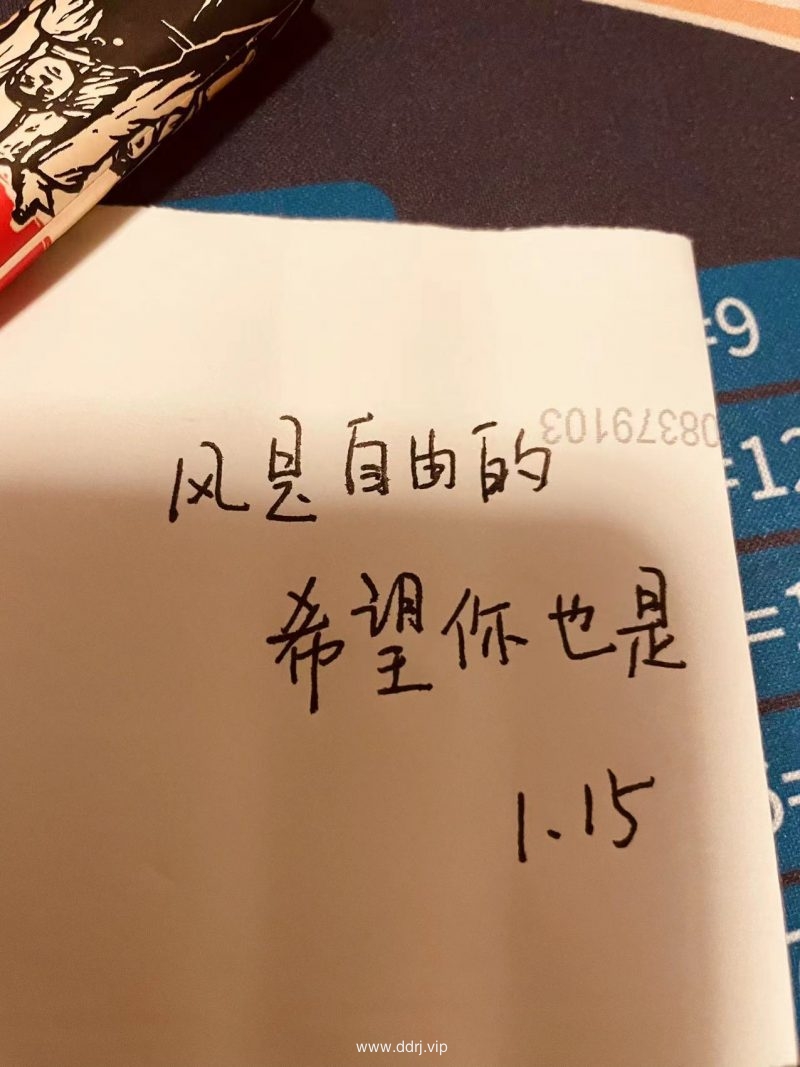 08379103
风是自由的
希望你也是
1.15
=9
=12
www.ddrj.vip